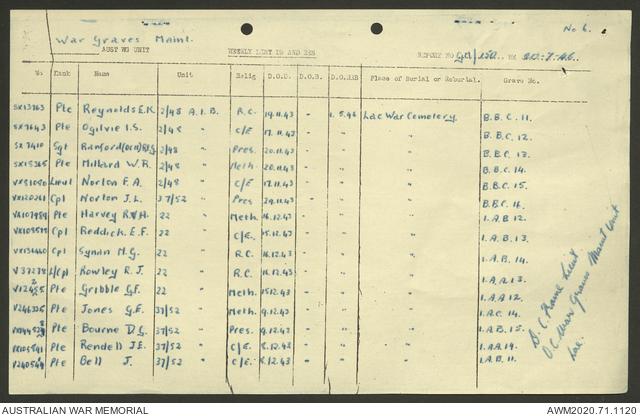 No 6.
War Graves Maint.
AUST WG UNIT WEEKLY LIST IB AND RES REPORT TO
No. Rank Name Unit Relig D.O.D. D.O.B. D.O.REB Place of Burial or Reburial. Grave No.
SX13763 Pte Reynolds E.K. 2/48 A.I.B. R.C. 19.11.43 " 1.5.46 Lae War Cemetery. B.B.C. 11.
SX7643 Pte Ogilvie I.S. 2/48 " C/E 17.11.43 " " " B.B.C. 12.
SX7410 Sgt Ranford 2/48 " Pres. 20.11.43 " " " B.B.C. 13.
SX15365 Pte Millard W.R. 2/48 " Meth. 20.11.43 " " " B.B.C. 14.
Lieut Norton F.A. 2/48 " C/E 17.11.43 " " " B.B.C. 15.
Cpl Norton J.L. 37/52 " Pres 29.11.43 " " " B.B.C. 16.
Pte Harvey 22 " Meth. 16.12.43 " " " I.A.B. 12.
Cpl Reddick. E.F. 22 " C/E. 15.12.43 " " " I.A.B. 13.
Cpl Synan M.G. 22 " R.C. 16.12.43 " " " I.A.B. 14.
V37278 L/Cpl Rowley R.J. 22 " R.C. 16.12.43 " " " I.A.A 13.
Pte Gribble G.F. 22 " Meth. 15.12.43 " " " I.A.A 12.
Pte Jones G.E. 37/52 " Meth. 9.12.43 " " " I.A.C. 14.
Pte Bourne D.G. 37/52 " Pres. 9.12.43 " " " I.A.B. 15.
Pte Rendell J.E. 37/52 " C/E 8.12.43 " " " I.A.A. 14.
Pte Bell J. 37/52 " C/E. 8.12.43 " " " I.A.B. 11.
Lieut
O.C. War Graves Maint Unit
Lae.
AUSTRALIAN WAR MEMORIAL AWM2020.71.1120